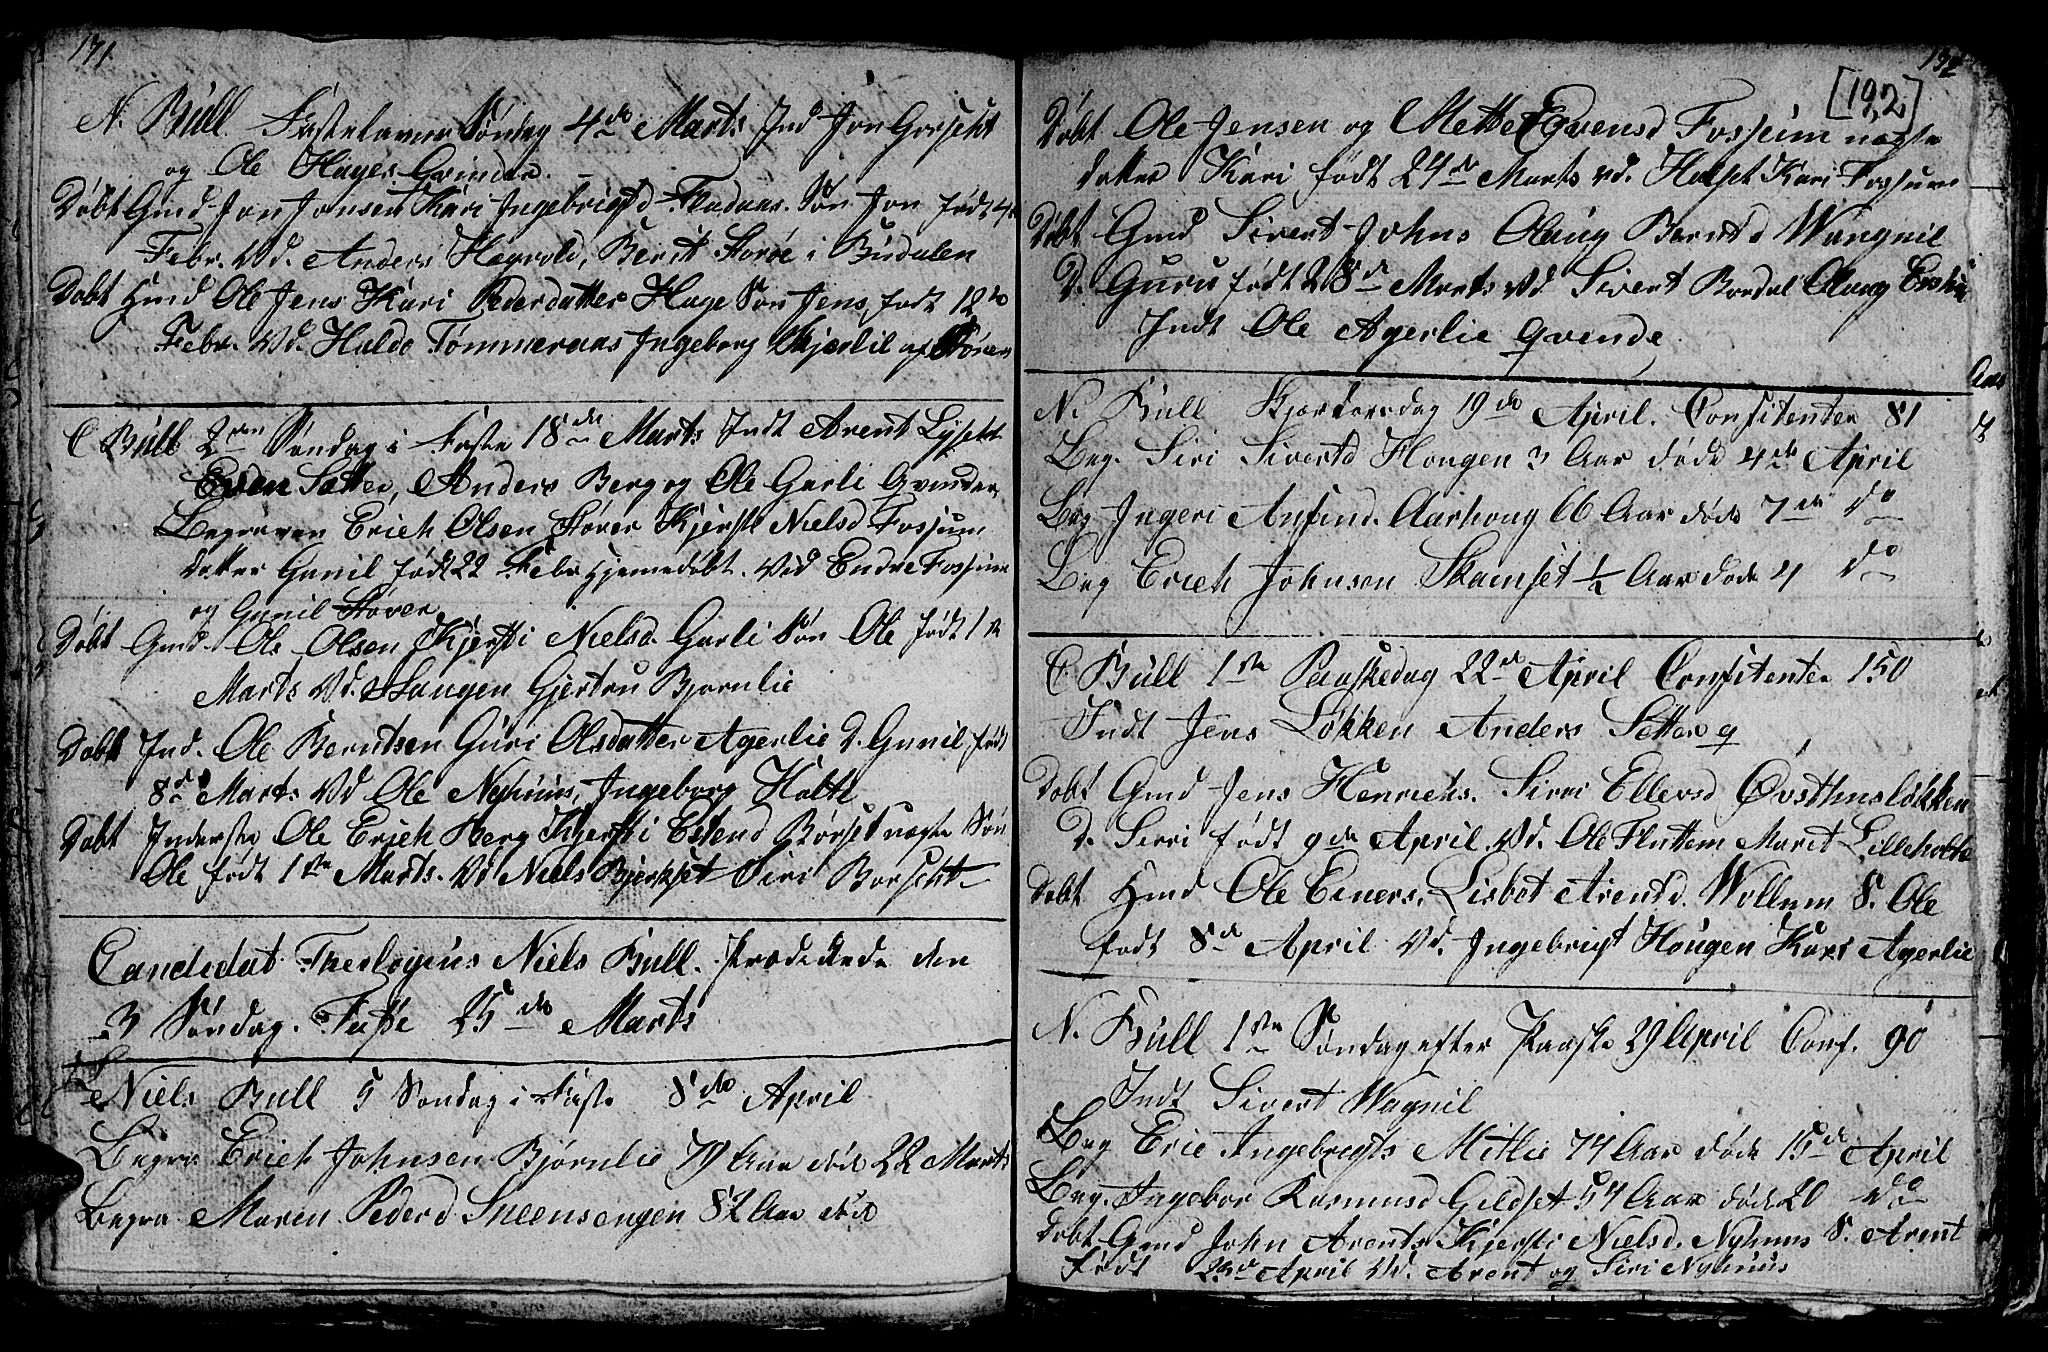 171.
N. Bull. Fastelavns Søndag 4de Marts Ind Jon
og Ole Hages Grinder.
Døbt Gmd Jon Jonsen Kari Ingebrigtsd Fladaas. Søn Jon født 4
Febr. Vd. Anders Hegvold, Berit Storøe i Budalen
Døbt Hmd Ole Jens Kari Pedersdatter Hage Søn Jens, født 12te
Febr. Vd. Haldo Tømmeraas Ingeborg Kjerlil og Støren
C Bull 2den Søndag i Faste 18de Marts Indt Arent
Even Sætter, Anders Berg og Ole Garli Qvinder
Begraven Erich Olsen Støver Kjersti Nielsd Fossum
datter Gunil født 22 Febr hjemedøbt. Vid Endre Fossum
og Gunil Støver
Døbt Gmd. Ole Olsen Kjersti Nielsd. Garli Søn Ole født 1te
Marts Vd. Haugen Gjertru Bjørnlie
Døbt Ind. Ole Berntsen Guri Olsdatter Agerlie D. Gunil, født
8de Marts Vd Ole Nyhuus, Ingeborg Holte
Døbt Inderste Ole Erich Berg Kjersti Estend Børset uægte Søn
Ole født 1ste Marts. Vd Niels Bjerkset Siri
Candidat Theologius Niels Bull. Prædikede den
3 Søndag. Faste 25de Marts
Niels Bull 5 Søndag i Faste 8de April
Begra Erich Johnsen Bjørnlie 79 Aar død 22 Marts
Begra Maren Pederd Sneensengen 82 Aar
192
[192]
Døbt Ole Jensen og Mette Evensd Fossum uægte
datter Kari født 24de Marts vd. Halset Kari Fossum
Døbt Gmd Sivert Johns Olaug Berntd Wangnil
D. Guru født 28de Marts Vd Sivert Bordal Olaug
Indt Ole Agerlie qvinde
N. Bull Skjærtorsdag 19de April. Confitenter 81
Beg. Siri Sivertd Hougen 3 Aar døde 4de April
Beg Ingeri Anfind. Aarhoug 66 Aar døde 7de do
Beg Erich Johnsen Skamset 1/2 Aar døde 4 do
C Bull 1ste Paaskedag 22de April Confitenter 150
Indt Jens Løkken Anders Setter q
Døbt Gmd Jens Henrichs. Sirri Ellevsd Østhusløkken
D. Sirri født 9de April Vd. Ole Fluttem Marit Lilleholte
Døbt Hmd Ole Einers. Lisbet Arentd. Wollum S. Ole
født 8de April Vd. Ingebrigt Hougen Kari Agerlie
N. Bull 1ste Søndag efter Paaske 29 April Conf. 90
Indt Sivert Wagnil
Beg Eric Ingebregts Mitlie 74 Aar døde 15de April
Beg. Ingebor Rasmusd Gildset 54 Aar døde 20 do
Døbt Gmd John Arents Kjersti Nielsd. Nyhuus S. Arent
Født 23de April Vd. Arent og Siri Nyhuus